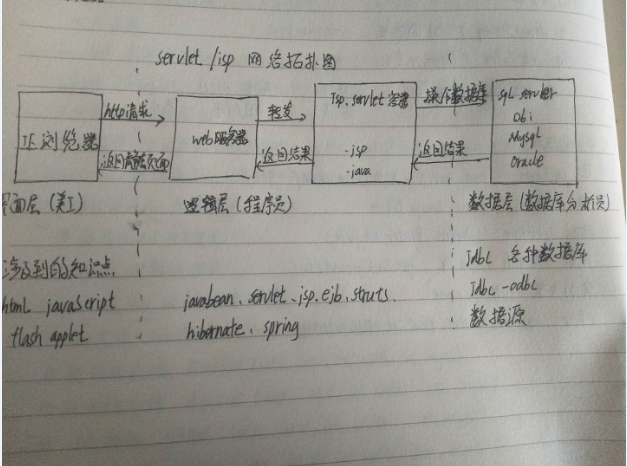 servlet/jsp 网络拓扑图
http请求 转发 Jsp、servlet容器 操作数据库 sql server
IE浏览器 web服务器 Db2
返回静态页面 返回结果 .jsp 返回结果 Mysql
.java oracle
界面层(美工) 逻辑层(程序员) 数据层(数据库分析员)
涉及到的知识点 Jdbc 各种数据库
html javascript javabean、servlet、jsp、ejb、struts、 Jdbc-odbc
flash applet hibernate、spring 数据源